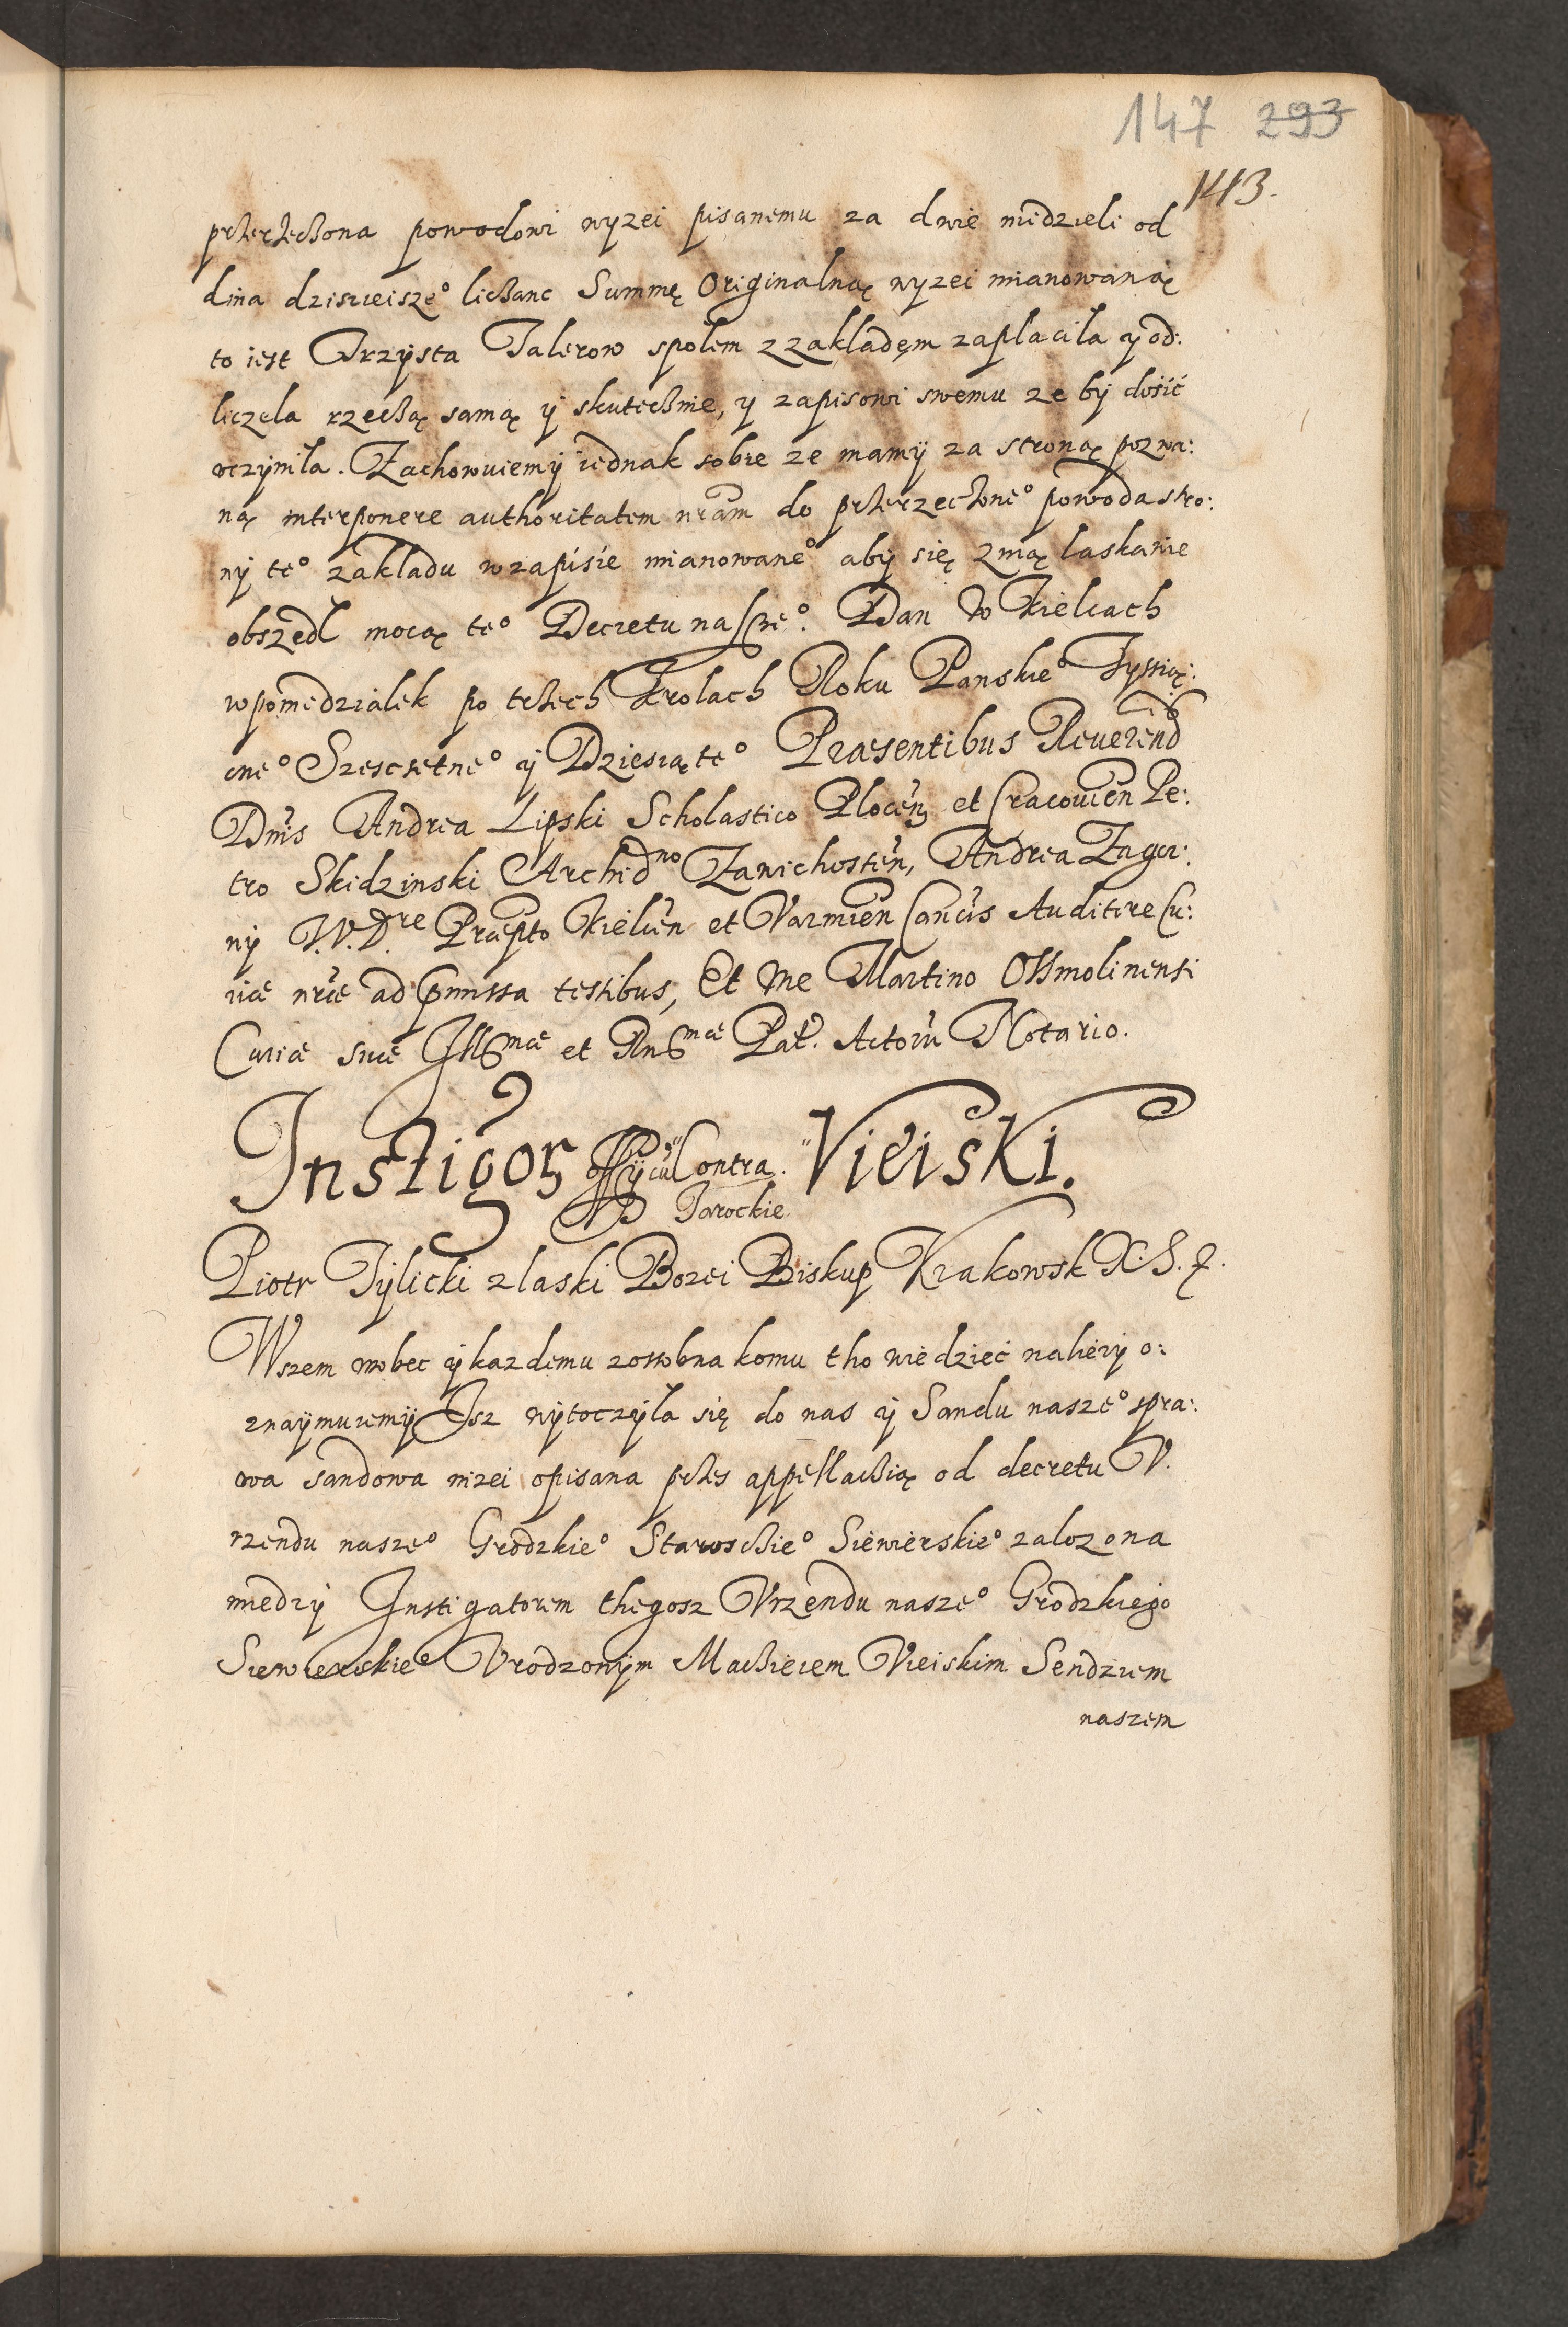 147 293
143.
prżerżeczona powodowi wyzei pisanemu za dwie niedzieli od
dnia dzisieisze° liczanc Summę Originalną wyzei mianowaną
to iest Trzysta Talerow spolem z zakladęm zaplacila ÿ od:
liczela rzeczą samą ÿ skutecznie, y zapisowi swemu ze bÿ dosić
uczÿnila. Zachowuiemÿ iednak sobie ze mamÿ za stroną pozwa:
ną interponere authoritatem nram do prżerzeczone° powoda stro:
nÿ te° zakladu w zapisie mianowane° abÿ się z nią laskawie
obszedl mocą te° Decretu nasze°. Dan W Kielcach
w poniedzialek po trżech Krolach Roku Panskie° Tyssią:
cne° Szescsetne° ÿ Dziesiąte° Præsentibus Reuerend
Dnis Andrea Lipski Scholastico Plocen et Cracouien Pe:
tro Skidzinski Archidno Zawichosten, Andrea Zagor:
nÿ V.I.Dre Præpto Kielcen et Varmien Cancis Auditore Cu:
riæ nræ ad præmissa testibus, Et Me Martino Ossmolinensi
Curiæ suæ Illmæ et Rndmæ Pat. Actorum Notario.
Instigor Offÿcii Contra. Vieiski.
Jarockie.
Piotr Tÿlicki z laski Bozei Biskup Krakowsk X. S. &.
Wszem wobec ÿ kazdemu zossobna komu tho wiedzieć nalieży o:
znaÿmuiemÿ Isz wÿtoczÿla się do nas ÿ Sandu nasze° spra:
wa sandowa nizei opisana przes appellaczią od decretu V:
rzendu nasze° Grodzkie° Staroschie° Siewierskie° zalozona
miedzÿ Instigatorem thegosz Vrzendu nasze° Grodzkiego
Siewierskie° Vrodzonÿm Maczieiem Vieiskim Sendziem
naszem